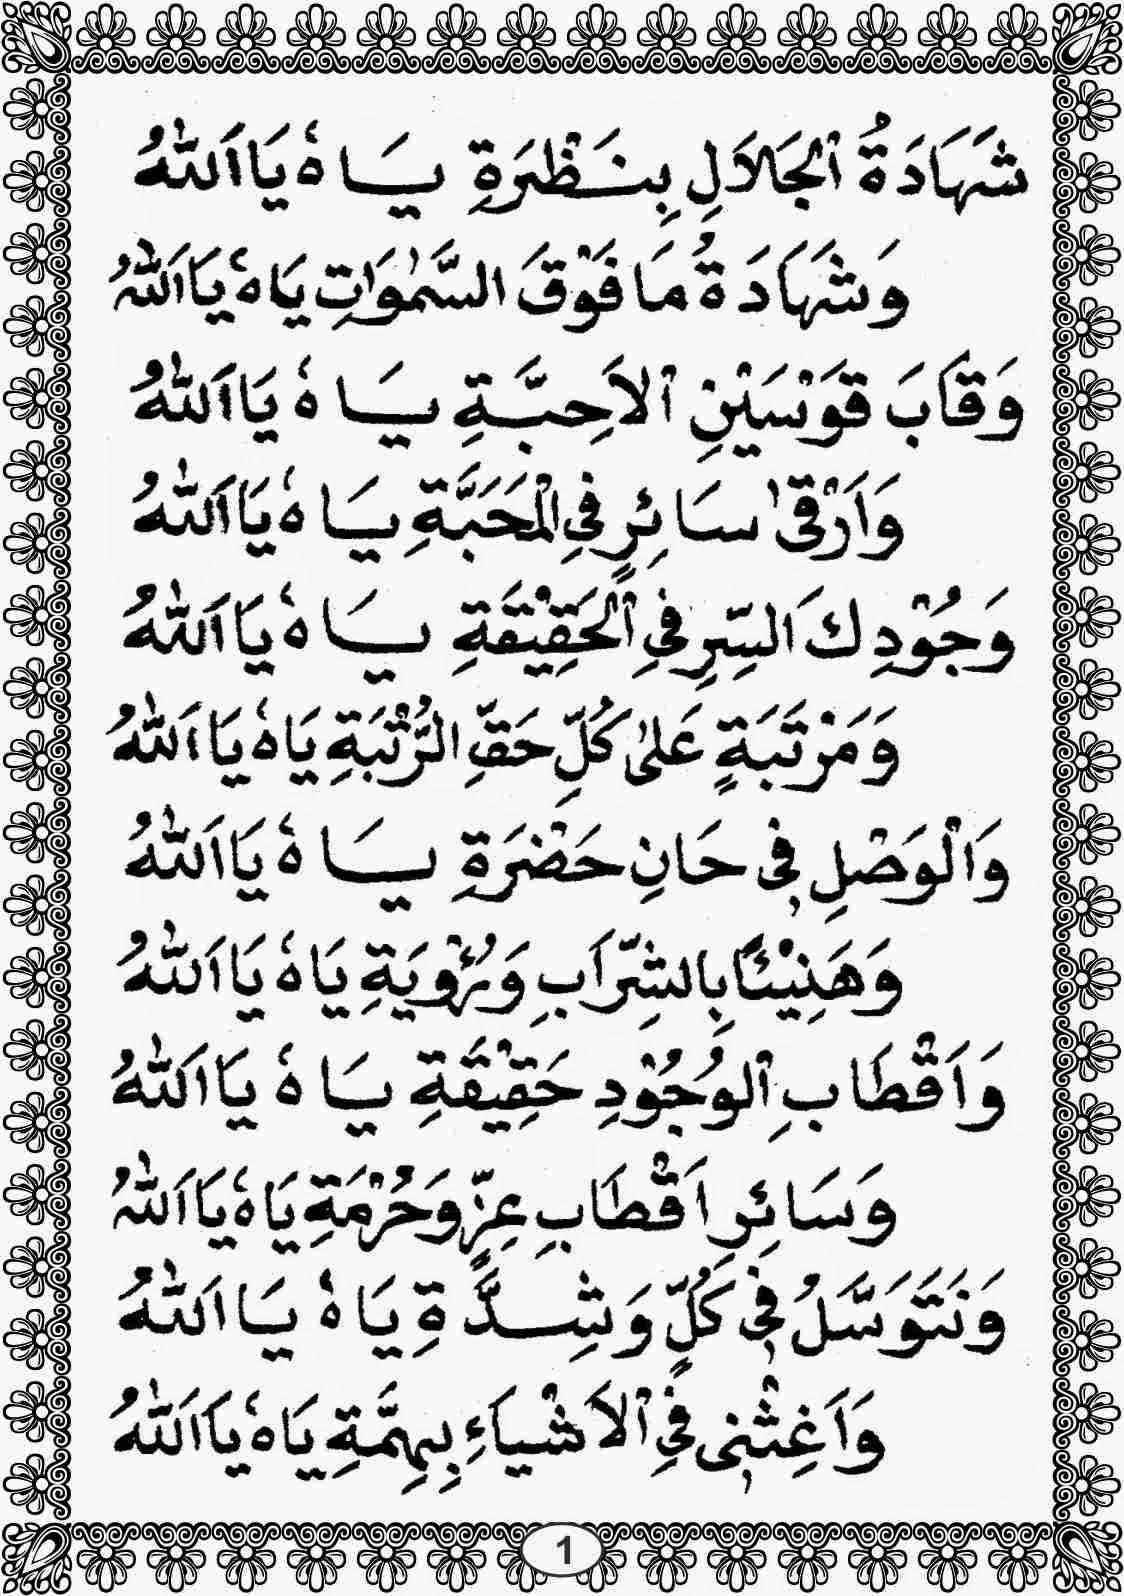 شَهَادَةُ ٱلْجَلاَلِ بِنَظْرَةِ يَاهُ يَا اَللّٰهُ
وَشَهَادَةُ مَا فَوْقَ السَّمٰوَاتِ يَاهُ يَا اَللّٰهُ
وَقَابَ قَوْسَيْنِ ٱلاَحِبَّةِ يَاهُ يَا اَللّٰهُ
وَاَرْقٰى سَائِرٍ فِي الْمَحَبَّةِ يَاهُ يَا اَللّٰهُ
وَجُوْدِكَ السِّرِ فِي ٱلْحَقِيْقَةِ يَاهُ يَا اَللّٰهُ
وَمَرْتَبَةٍ عَلىٰ كُلِّ حَقِّ الرُّتْبَةِ يَاهُ يَا اَللّٰهُ
وَالْوَصْلِ فِى حَانِ حَضْرَةِ يَاهُ يَا اَللّٰهُ
وَهَنِيْئًا بِالشِّرَابِ وَرُؤْيَةِ يَاهُ يَا اَللّٰهُ
وَاَقْطَابِ ٱلْوُجُوْدِ حَقِيْقَةِ يَاهُ يَا اَللّٰهُ
وَسَائِرِ اَقْطَابِ عِزٍّ وَحُرْمَةِ يَاهُ يَا اَللّٰهُ
وَنَتَوَسَّلُ فِى كُلٍّ وَشِدَّةِ يَاهُ يَا اَللّٰهُ
وَاَغِثْنِى فِي ٱلاَشْيَاءِ بِهِمَّةِ يَاهُ يَا اَللّٰهُ
1